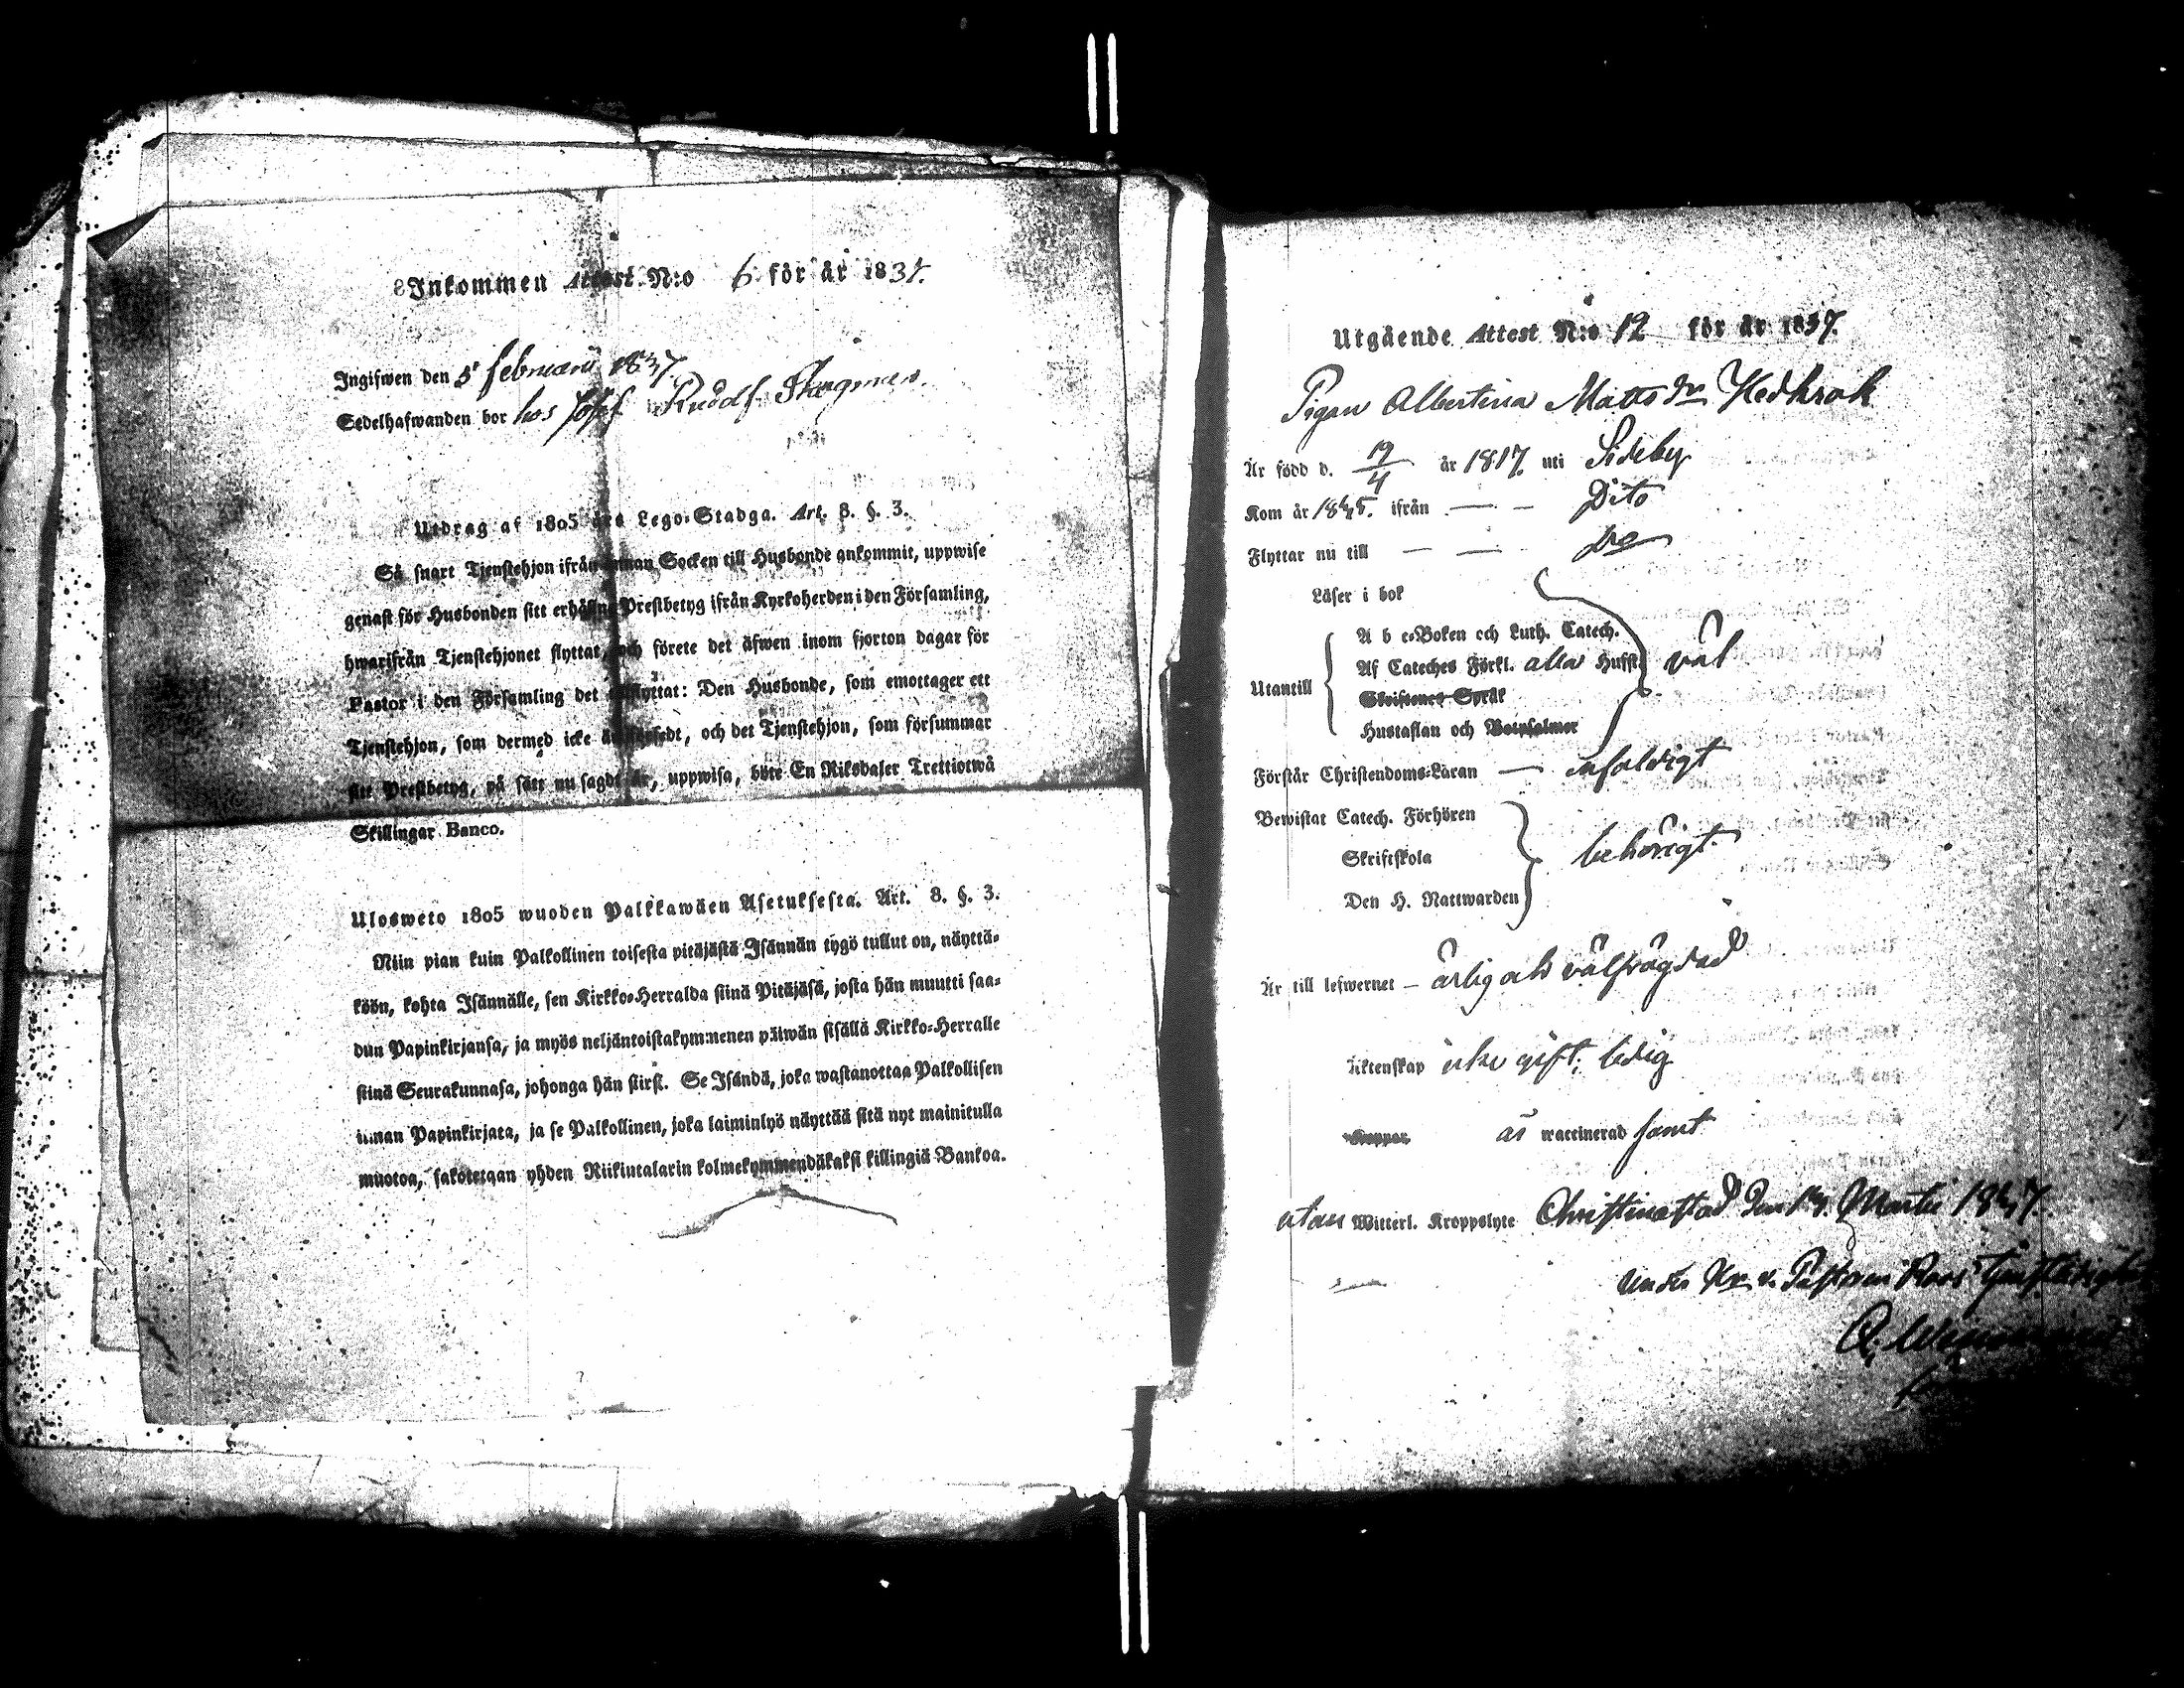 Inkommen Attest N:o 6 för år 1837.
Ingifwen den 5 februarii 1847.
Sedelhafwanden bor hos Josef
Utdrag af 1805 års Lego-Stadga. Art. 8. §. 3.
Så snart Tjenstehjon ifrån annan Socken till Husbonde ankommit, uppwise
genast för Husbonden sitt erhållne Prestbetyg ifrån Kyrkoherden i den Församling,
hwarifrån Tjenstehjonet flyttat, och förete det äfwen inom fjorton dagar för
Pastor i den Församling det tillflyttat: Den Husbonde, som emottager ett
Tjenstehjon, som dermed icke är försedt, och det Tjenstehjon, som försummar
sitt Prestbetyg, på sätt nu sagdt är, uppwisa, böte En Riksdaler Trettiotwå
Skillingar Banco.
Ulosweto 1805 wuoden Palkkawäen Asetuksesta. Art. 8. §. 3.
Niin pian kuin Palkollinen toisesta pitäjästä Isännän tygö tullut on, näyttä-
köön, kohta Isännälle, sen Kirkko-Herralda siinä Pitäjäsä, josta hän muutti saa-
dun Papinkirjansa, ja myös neljäntoistakymmenen päiwän sisällä Kirkko-Herralle
siinä Seurakunnasa, johonga hän siirst. Se Isändä, joka wastanottaa Palkollisen
ilman Papinkirjata, ja se Palkollinen, joka laiminlyö näyttää sitä nyt mainitulla
muotoa, sakotetaan yhden Riikintalarin kolmekymmendäkaksi killingiä Bankoa.
Utgående Attest N:o 12 för år 1837.
Pigan Albertina Matts dr Hedkrok
Är född d. 19/4 år 1817 uti Sideby
Kom år 1845. ifrån — — Dito
Flyttar nu till — — Do
Läser i bok
A b c-Boken och Luth. Catech.
Af Cateches Förkl. alla Hufst. väl
Utantill
Skriftenes Språk
Hustaflan och Botpsalmer
Förstår Christendoms-Läran — enfaldigt
Bewistat Catech. Förhören
Skriftskola behörigt.
Den H. Nattwarden
Är till lefwernet — ärlig och välfrägdad
Äktenskap icke gift, ledig
Koppor är waccinerad samt
utan Witterl. Kroppslyte Christinestad den Martii 1847.
Under v. Pastoren Roos